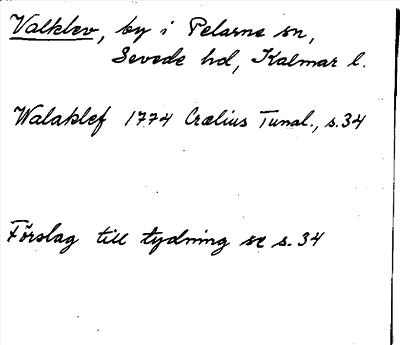 Valklev, by i Pelarne sn,
Sevede hd, Kalmar l.
Walaklef 1774 Crælius Tunal., s.34
Förslag till tydning se s.34